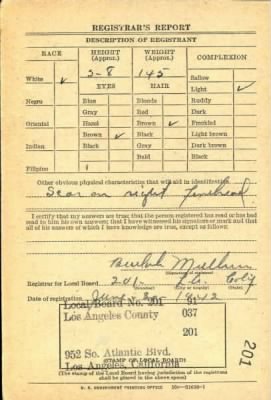 REGISTRAR'S REPORT
DESCRIPTION OF REGISTRANT
RACE HEIGHT (Approx.) WEIGHT (Approx.) COMPLEXION
White ✓ 5-8 145 Sallow
EYES HAIR Light ✓
Negro Blue Blonde Ruddy
Gray Red Dark
Oriental Hazel Brown ✓ Freckled
Brown ✓ Black Light brown
Indian Black Gray Dark brown
Bald Black
Filipino
Other obvious physical characteristics that will aid in identification
Scar on right forehead
I certify that my answers are true; that the person registered has read or has
had read to him his own answers; that I have witnessed his signature or mark and that
all of his answers of which I have knowledge are true, except as follows:
Beulah
(Signature of registrar)
Registrar for Local Board 201 L.A. Calif
(Number) (City or county) (State)
Date of registration 1942
Local Board No. 201
Los Angeles County 037
201
201
952 So. Atlantic Blvd.
(STAMP OF LOCAL BOARD)
Los Angeles, California
(The stamp of the Local Board having jurisdiction of the registrant
shall be placed in the above space)
U. S. GOVERNMENT PRINTING OFFICE